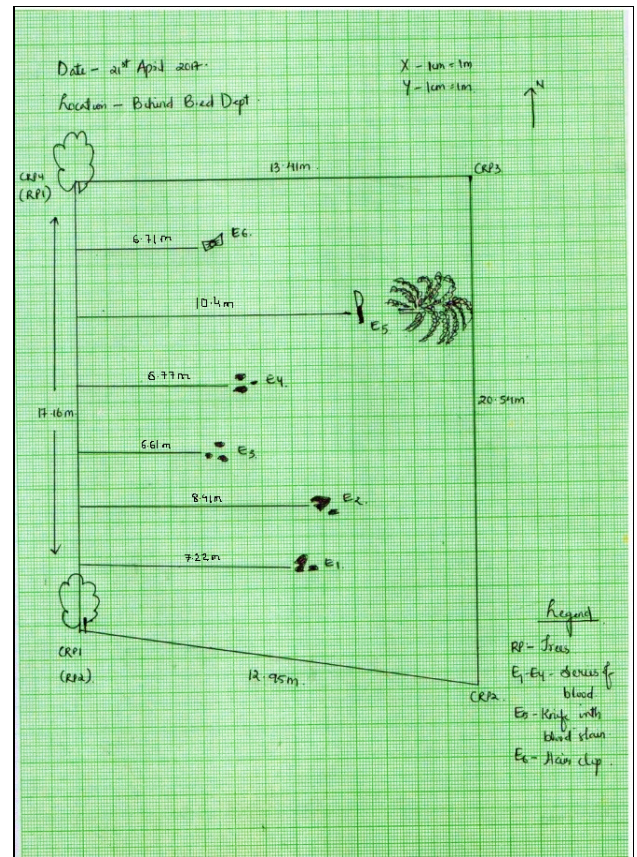 Date - 21st April 2017.
Location - Behind B.ed Dept.
X - 1cm = 1m
Y - 1cm = 1m.
N
CRP4
(RP1)
13.41m.
CRP3
6.71m
E6.
10.4m
E5
6.77m
E4
17.16m
20.54m
6.61m
E3
8.41m
E2
7.22m
E1
CRP1
(RP2)
12.95m.
CRP2
Legend
RP - Trees
E1-E4 - Series of
blood
E5 - Knife with
blood stain
E6 - Hair clip.